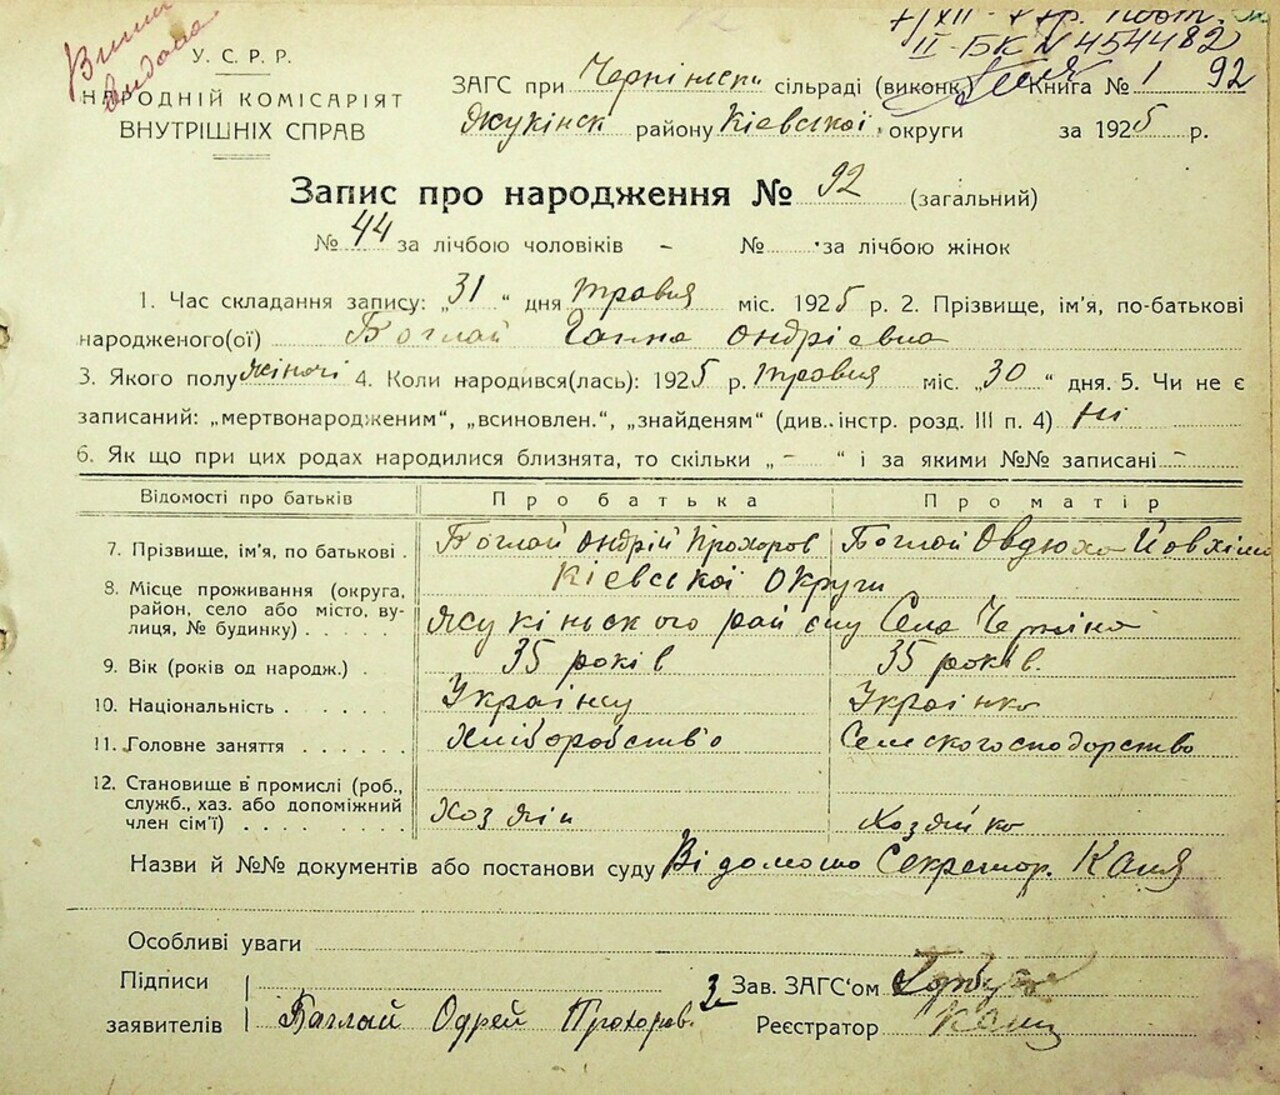 Випис видано
II-БК N 454482
У. С. Р. Р.
НАРОДНІЙ КОМІСАРІЯТ
ВНУТРІШНІХ СПРАВ
ЗАГС при Чернінськ сільраді (виконк.) Книга № 1 92
Жукінськ району Кіевської округи за 1925 р.
Запис про народження № 92 (загальний)
№ 44 за лічбою чоловіків - № за лічбою жінок
1. Час складання запису: „31“ дня травня міс. 1925 р. 2. Прізвище, ім'я, по-батькові
народженого(ої) Боглай Ганна Ондріевна
3. Якого полу жіночі 4. Коли народився(лась): 1925 р. травня міс. „30“ дня. 5. Чи не є
записаний: „мертвонародженим“, „всиновлен.“, „знайденям“ (див. інстр. розд. III п. 4) ні
6. Як що при цих родах народилися близнята, то скільки „-“ і за якими №№ записані -
Відомості про батьків Про батька Про матір
7. Прізвище, ім'я, по батькові . Боглай Ондрій Прохоров Боглай Овдюха Йовхім
8. Місце проживання (округа, Кіевської Округи
район, село або місто, ву-
лиця, № будинку) . . . . . Жукінського району Села Черніна
9. Вік (років од народж.) . 35 років 35 років.
10. Національність . . . . . Українец Українка
11. Головне заняття . . . . . . Хліборобство Сельскогосподорство
12. Становище в промислі (роб.,
служб., хаз. або допоміжний
член сім'ї) . . . . . . . . Хозяін Хозяйка
Назви й №№ документів або постанови суду Відомото Секретор. Каня
Особливі уваги
Підписи Зав. ЗАГС'ом
заявителів Баглай Одрей Прохоров. Реєстратор